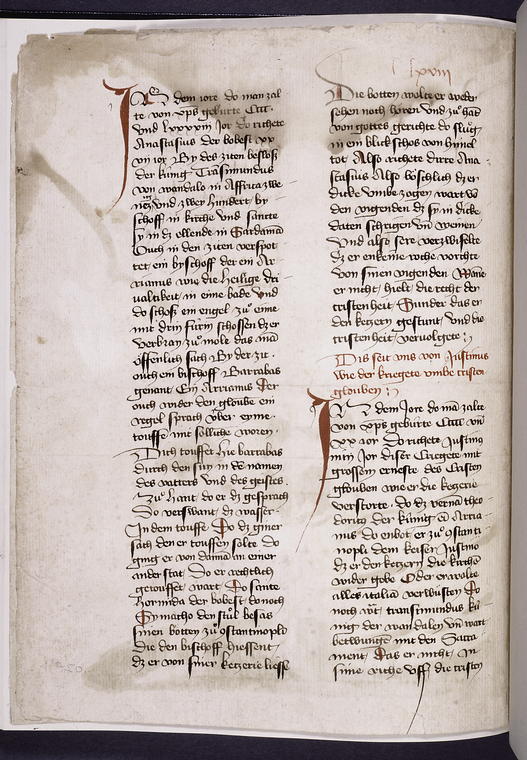 lxviii
IN dem iore do man zal
te von xps geburte CCCC
vnd lxxxxiii Jor do richete
Anastasius der bobest xx
vii ior By des ziten besloß
der künig Trasimundus
von wandalo in Affrica zwe
nczig vnd zwey hundert by
schoff in kirche vnd sancte
sy in dz ellende in Sardaniā
Ouch in den ziten verspot
tet ein byschoff der ein Ar
rianus wie die heilige dri
ualtikeit in eime bade Vnd
do schoß ein engel zu eime
mit drin fürin schossen dz er
verbran zu mole das mā
öffenlich sach By der zit
ouch ein bischoff Barrabas
genant Ein Arrianus Der
ouch wider den glouben ein
regel sprach über eyme
touffē mit sölliche worten
Dich touffet hie barrabas
durch den sun in dē namen
des vatters vnd des geistes
Zu hant do er dz gesprach
Do verswant dz wasser
In dem touffe Do dz giner
sach den er touffen solte do
ging er von dannā an einer
ander stat Do er rechtlich
getouffet wart Do sante
hormida der bobest dernoch
Symacho den stul besas
sinen botten zu 9stantinopls
die den bischoff hiessent
dz er von siner ketzerie liesse
Die botten wolte er weder
sehen noch hören Vnd zu hāt
von gottes gerichte do slug
in ein blickschos von himel
tot Also richete dirre Ana
stasius Also böschlich dz er
dicke vmbe zogen wart vō
den vigenden dz sy in dicke
daten schrigen vn weinen
Vnd also sere verzwifelte
dz er enkeine roche vorchte
von sinen vigenden Wane
er nicht hielt die recht der
cristenheit Sunder das er
den ketzern gestunt vnd die
cristenheit veruolgete
Dis seit vns von Justinus
wie der kriegete vmbe cristen
glouben
IN dem Jore do mā zalte
von xps geburte CCCC vn
xx ior do richete Justino
min Jor diser Criegete mit
grossem erneste des Cristen
glouben wie er die ketzerie
verstorte do dz vernā theo
doricus der künig ein Arria
nus do enbot er zu 9stanti
nopls dem keiser Justino
dz er den ketzern die kirchē
wider gebe Oder er wolte
alles italia verwüsten Do
noch wz transimundus kü
nig der wandalen vn wart
betwungē mit den Sacra
ment Das er nicht In
sime riche vff die cristen